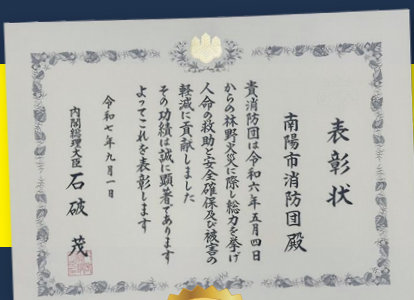 表彰状
南陽市消防団殿
貴消防団は令和六年五月四日
からの林野火災に際し総力を挙げ
人命の救助と安全確保及び被害の
軽減に貢献しました
その功績は誠に顕著であります
よってこれを表彰します
令和七年九月一日
内閣総理大臣 石破 茂